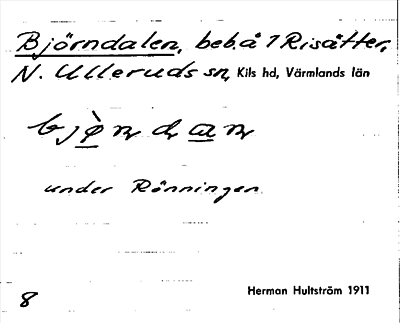 Björndalen, beb. å 1 Risäter,
N. Ulleruds sn, Kils hd, Värmlands län
under Rönningen.
8 Herman Hultström 1911